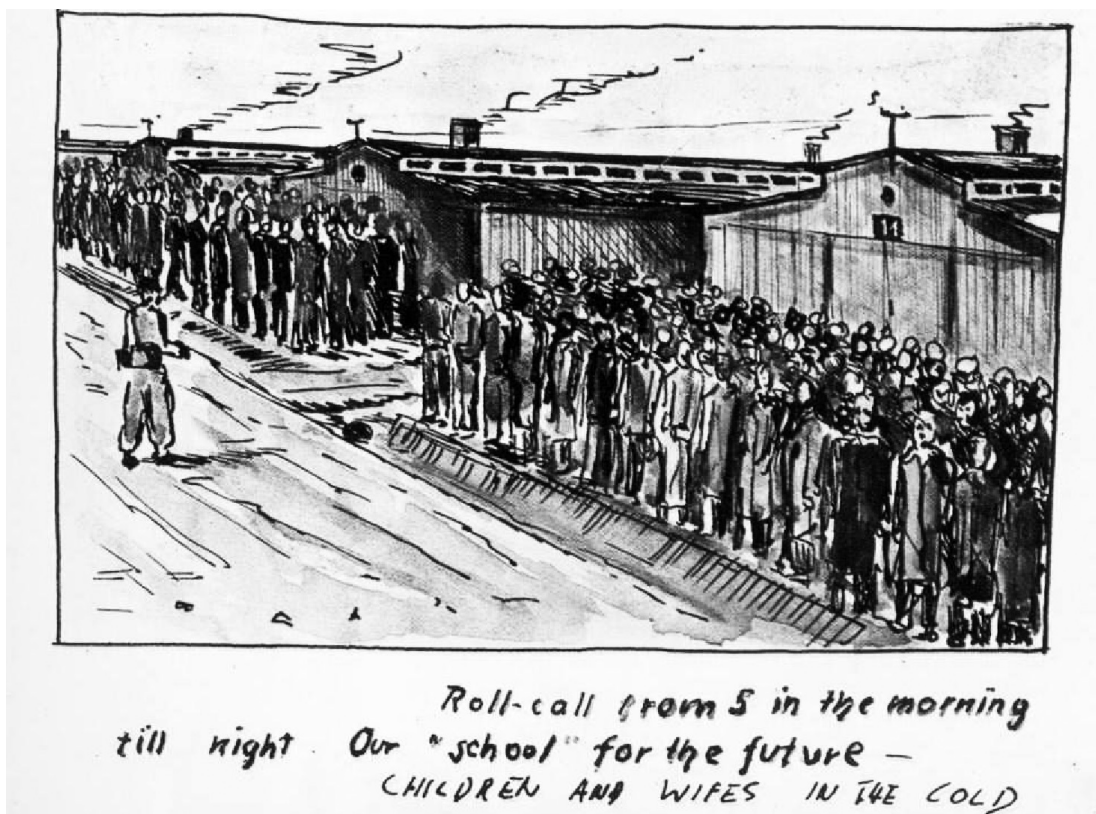 Roll-call from 5 in the morning
till night. Our "school" for the future —
CHILDREN AND WIFES IN THE COLD